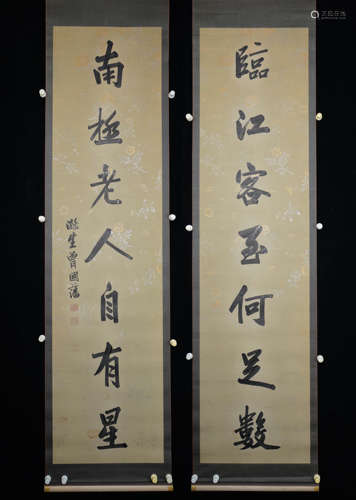 臨江客至何足數
南極老人自有星
滌生曾國藩